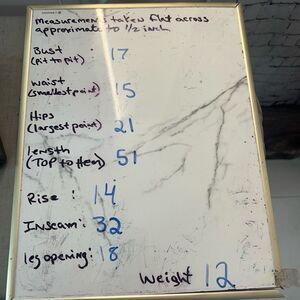 measurements taken flat across
approximate to 1/2 inch
Bust : 17
(pit to pit)
waist : 15
(smallest point)
Hips : 21
(largest point)
length : 51
(TOP to Hem)
Rise : 14
Inseam : 32
leg opening : 18
Weight 12